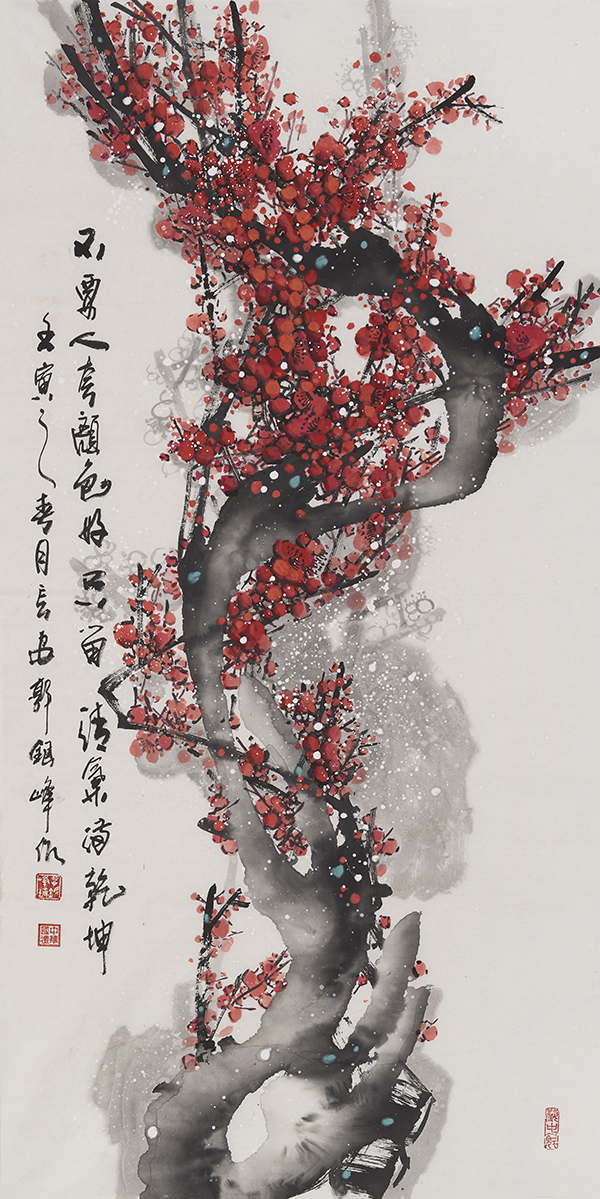 不要人夸顏色好只留清氣满乾坤
壬寅之春月郭銀峰作